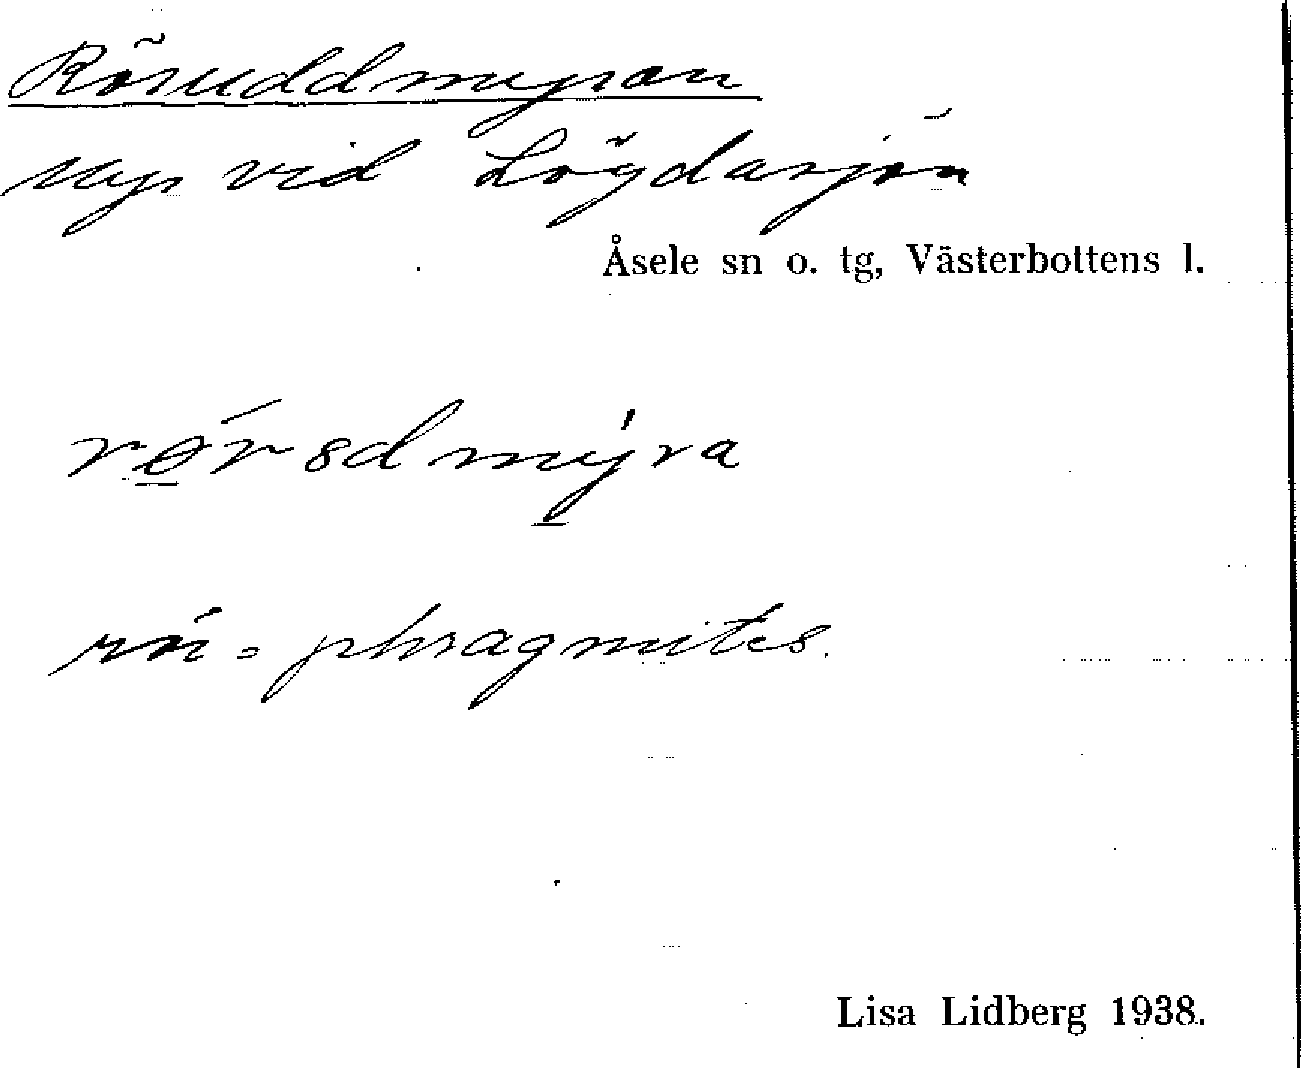 Röruddmyran
Myr vid Lögdasjön
Åsele sn o. tg, Västerbottens l.
phragmites.
Lisa Lidberg 1938.